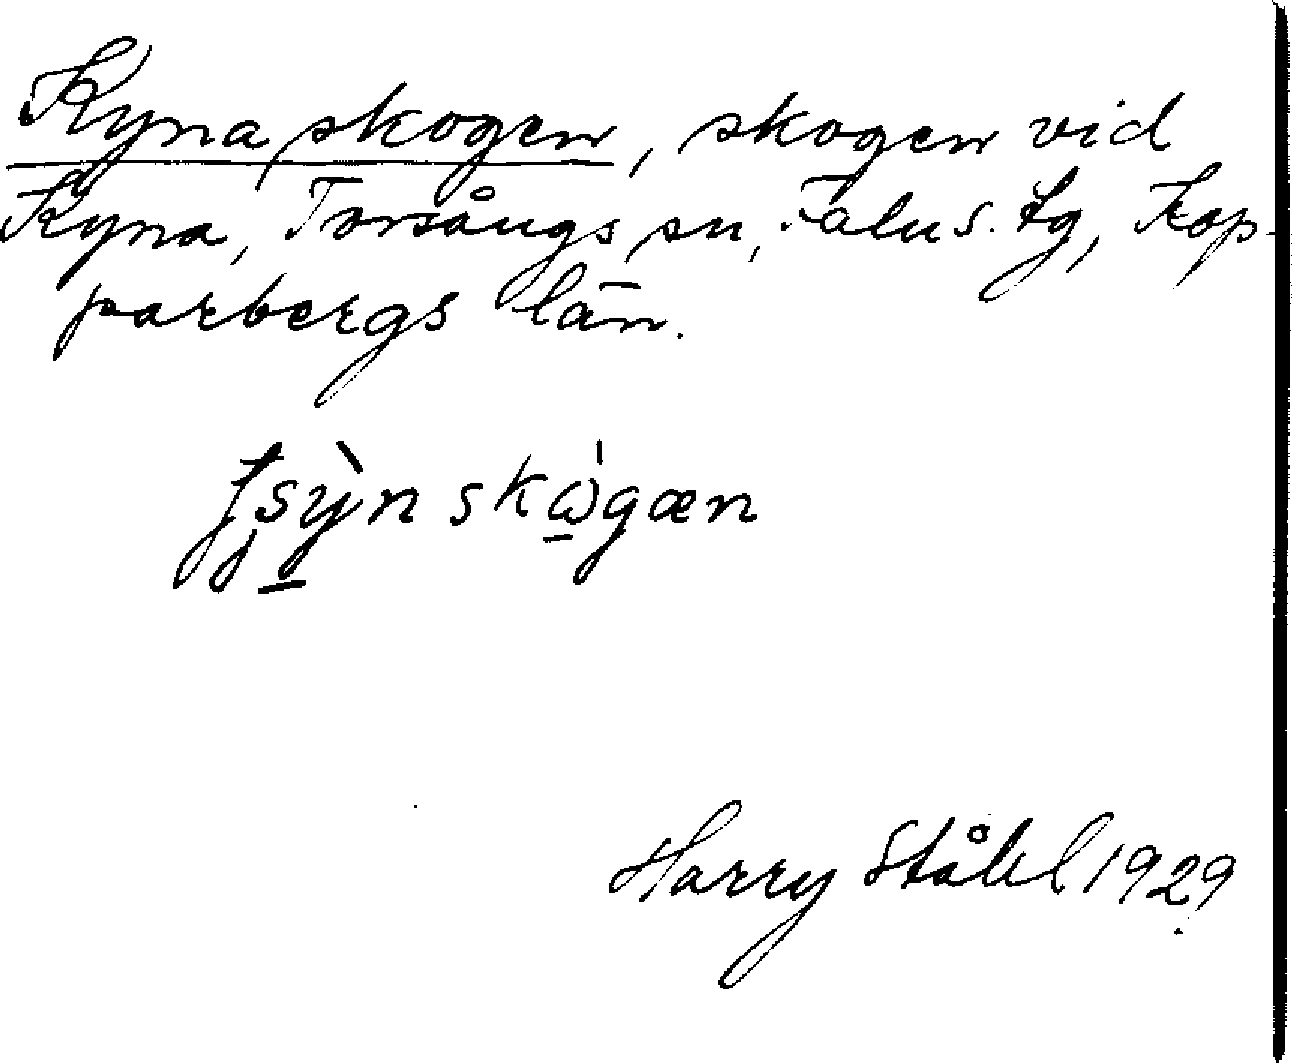 Kyna skogen, skogen vid
Kyna, Torsångs sn, Falu s. tg, Kop-
parbergs län.
Harry Ståhl 1929